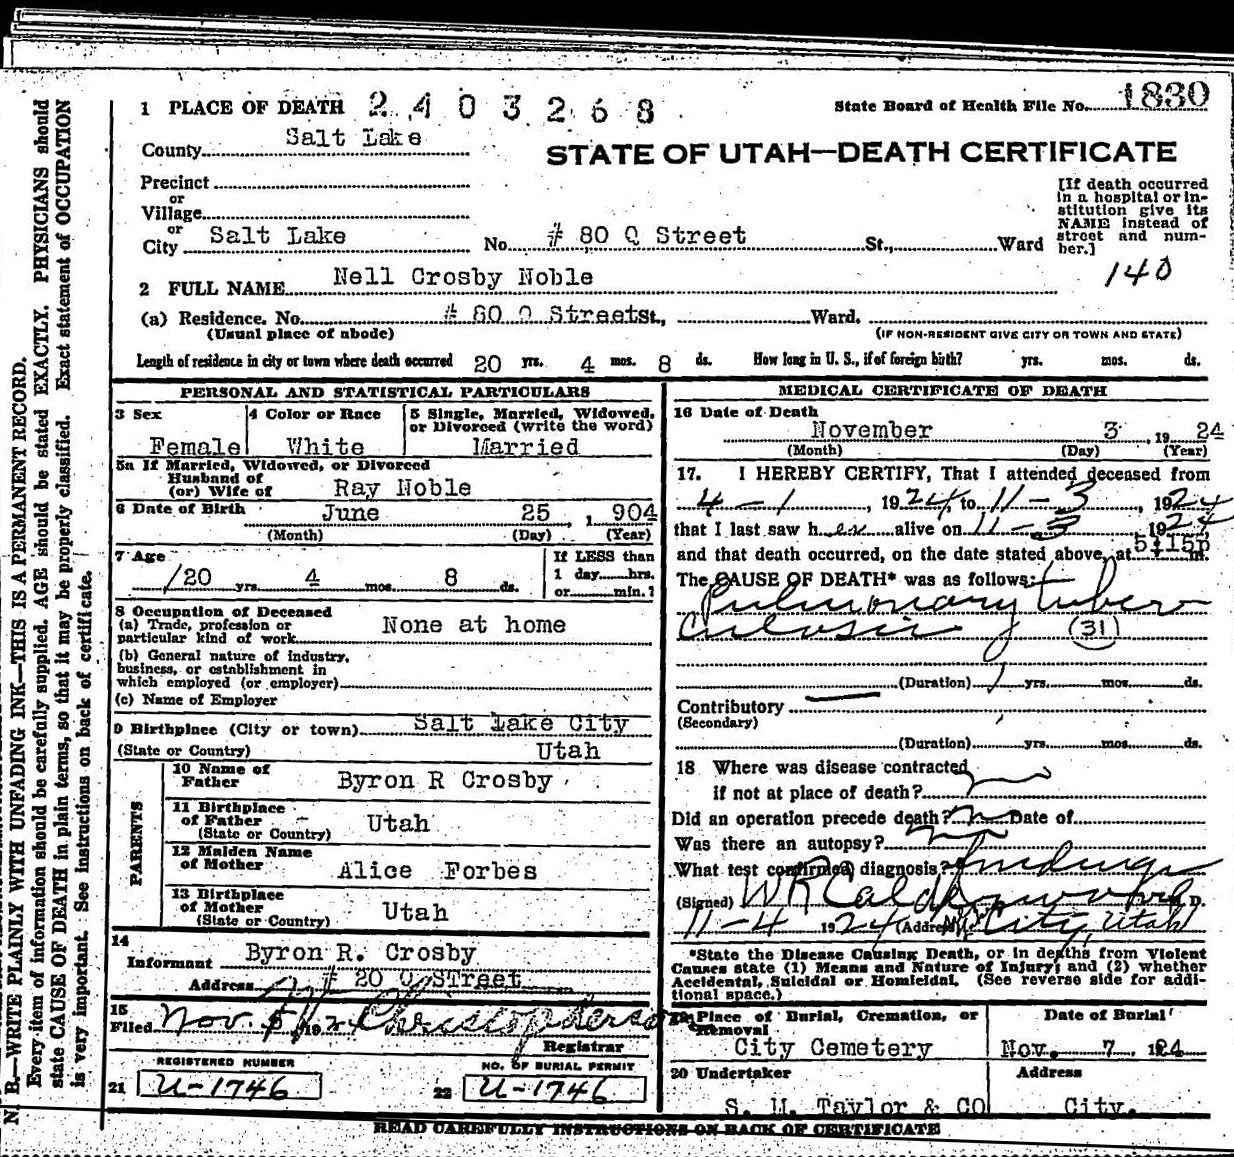 1 PLACE OF DEATH 2403268
State Board of Health File No. 1830
County Salt Lake
STATE OF UTAH—DEATH CERTIFICATE
Precinct
or
Village
or
City Salt Lake No. # 80 Q Street St., Ward
[If death occurred
in a hospital or in-
stitution give its
NAME instead of
street and num-
ber.]
140
2 FULL NAME Nell Crosby Noble
(a) Residence. No. # 80 Q Street St., Ward.
(Usual place of abode) (IF NON-RESIDENT GIVE CITY OR TOWN AND STATE)
Length of residence in city or town where death occurred 20 yrs. 4 mos. 8 ds. How long in U. S., if of foreign birth? yrs. mos. ds.
PERSONAL AND STATISTICAL PARTICULARS
3 Sex
Female
4 Color or Race
White
5 Single, Married, Widowed,
or Divorced (write the word)
Married
5a If Married, Widowed, or Divorced
Husband of
(or) Wife of Ray Noble
6 Date of Birth June 25, 1904
(Month) (Day) (Year)
7 Age
20 yrs. 4 mos. 8 ds.
If LESS than
1 day hrs.
or min.?
8 Occupation of Deceased
(a) Trade, profession or
particular kind of work None at home
(b) General nature of industry,
business, or establishment in
which employed (or employer)
(c) Name of Employer
9 Birthplace (City or town) Salt Lake City
(State or Country) Utah
PARENTS
10 Name of
Father Byron R Crosby
11 Birthplace
of Father
(State or Country) Utah
12 Maiden Name
of Mother Alice Forbes
13 Birthplace
of Mother
(State or Country) Utah
14
Informant Byron R. Crosby
Address # 20 Q Street
15
Filed Nov. 5, 1924 Christopherson
Registrar
REGISTERED NUMBER
21 U-1746
NO. OF BURIAL PERMIT
22 U-1746
MEDICAL CERTIFICATE OF DEATH
16 Date of Death
November 3, 1924
(Month) (Day) (Year)
17. I HEREBY CERTIFY, That I attended deceased from
4-1, 1924, to 11-3, 1924
that I last saw her alive on 11-3 1924
and that death occurred, on the date stated above, at 5:15p m.
The CAUSE OF DEATH* was as follows:
Pulmonary tuber
culosis 31
(Duration) 1 yrs. mos. ds.
Contributory
(Secondary)
(Duration) yrs. mos. ds.
18 Where was disease contracted
if not at place of death?
Did an operation precede death? no Date of
Was there an autopsy? no
What test confirmed diagnosis? findings
(Signed) W R Calderwood M. D.
11-4 1924 (Address) City, Utah
*State the Disease Causing Death, or in deaths from Violent
Causes state (1) Means and Nature of Injury; and (2) whether
Accidental, Suicidal or Homicidal. (See reverse side for addi-
tional space.)
19 Place of Burial, Cremation, or
Removal
City Cemetery
Date of Burial
Nov. 7, 1924
20 Undertaker
S. M. Taylor & CO
Address
City.
READ CAREFULLY INSTRUCTIONS ON BACK OF CERTIFICATE
N. B.—WRITE PLAINLY WITH UNFADING INK—THIS IS A PERMANENT RECORD.
Every item of information should be carefully supplied. AGE should be stated EXACTLY. PHYSICIANS should
state CAUSE OF DEATH in plain terms, so that it may be properly classified. Exact statement of OCCUPATION
is very important. See instructions on back of certificate.